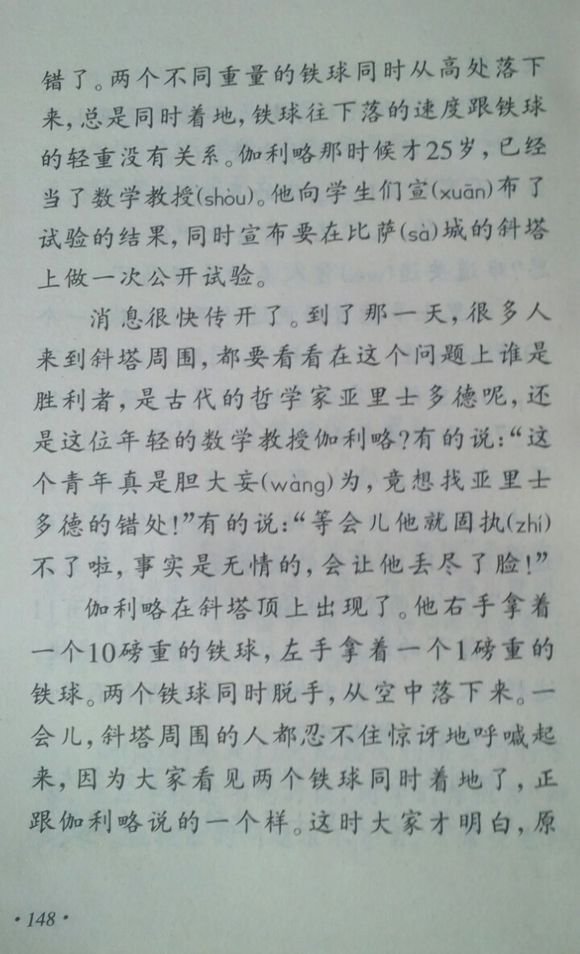 错了。两个不同重量的铁球同时从高处落下
来，总是同时着地，铁球往下落的速度跟铁球
的轻重没有关系。伽利略那时候才25岁，已经
当了数学教授(shòu)。他向学生们宣(xuān)布了
试验的结果，同时宣布要在比萨(sà)城的斜塔
上做一次公开试验。
消息很快传开了。到了那一天，很多人
来到斜塔周围，都要看看在这个问题上谁是
胜利者，是古代的哲学家亚里士多德呢，还
是这位年轻的数学教授伽利略？有的说：“这
个青年真是胆大妄(wàng)为，竟想找亚里士
多德的错处！”有的说：“等会儿他就固执(zhí)
不了啦，事实是无情的，会让他丢尽了脸！”
伽利略在斜塔顶上出现了。他右手拿着
一个10磅重的铁球，左手拿着一个1磅重的
铁球。两个铁球同时脱手，从空中落下来。一
会儿，斜塔周围的人都忍不住惊讶地呼喊起
来，因为大家看见两个铁球同时着地了，正
跟伽利略说的一个样。这时大家才明白，原
·148·